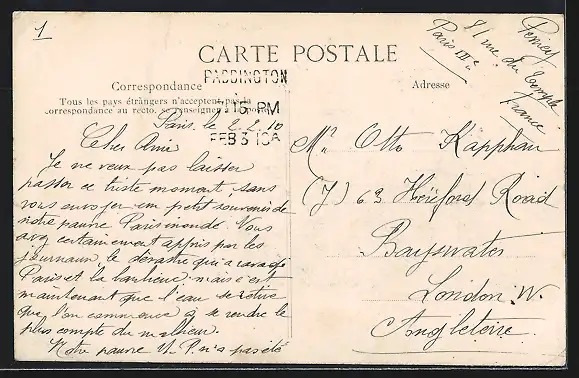 1
CARTE POSTALE
Correspondance
Tous les pays étrangers n'acceptent pas la
correspondance au recto, se renseigner à la poste
PADDINGTON
15 PM
FEB 3 10A
Adresse
Paris IIIe
81 rue du Temple
France
Paris, le 2.2.10
Cher Ami
Je ne veux pas laisser
passer ce triste moment sans
vous envoyer un petit souvenir de
notre pauvre Paris inondé. Vous
avez certainement appris par les
journaux le désastre qui a ravagé
Paris et la banlieue, mais c'est
maintenant que l'eau se retire
que l'on commence à se rendre le
plus compte du malheur.
Notre pauvre U. P. n'a pas été
Mr Otto Kapphan
(J) 63 Hereford Road
Bayswater
London. W.
Angleterre